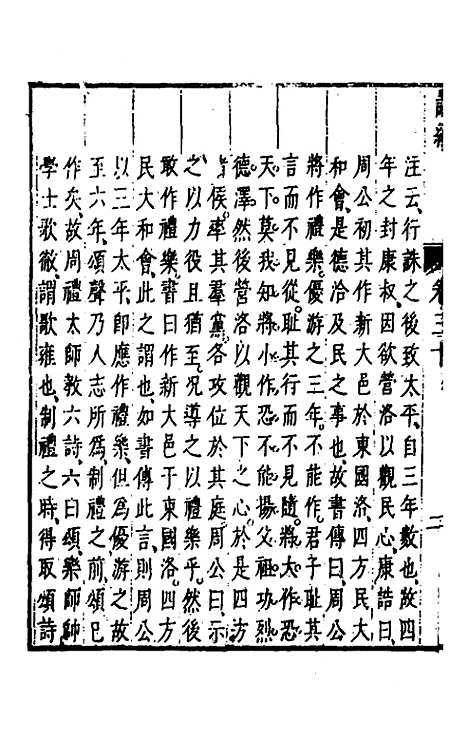 注云行誅之後致太平自三年數也故四
年之封康叔因欲營洛以觀民心康誥曰
周公初其作新大邑於東國洛四方民大
和會是德洽及民之事也故書傳曰周公
將作禮樂優游之三年不能作君子恥其
言而不見從恥其行而不見隨將大作恐
天下莫我知將小作恐不能揚父祖功烈
德澤然後營洛以觀天下之心於是四方
諸侯率其羣黨各攻位於其庭周公曰示
之以力役且猶至况導之以禮樂乎然後
敢作禮樂書曰作新大邑于東國洛四方
民大和會此之謂也如書傳此言則周公
以三年太平即應作禮樂但為優游之故
至六年頌聲乃人志所為制禮之前頌已
作矣故周禮太師教六詩六曰頌樂師帥
學士歌徹謂歌雍也制禮之時得取頌詩
卷三十
二